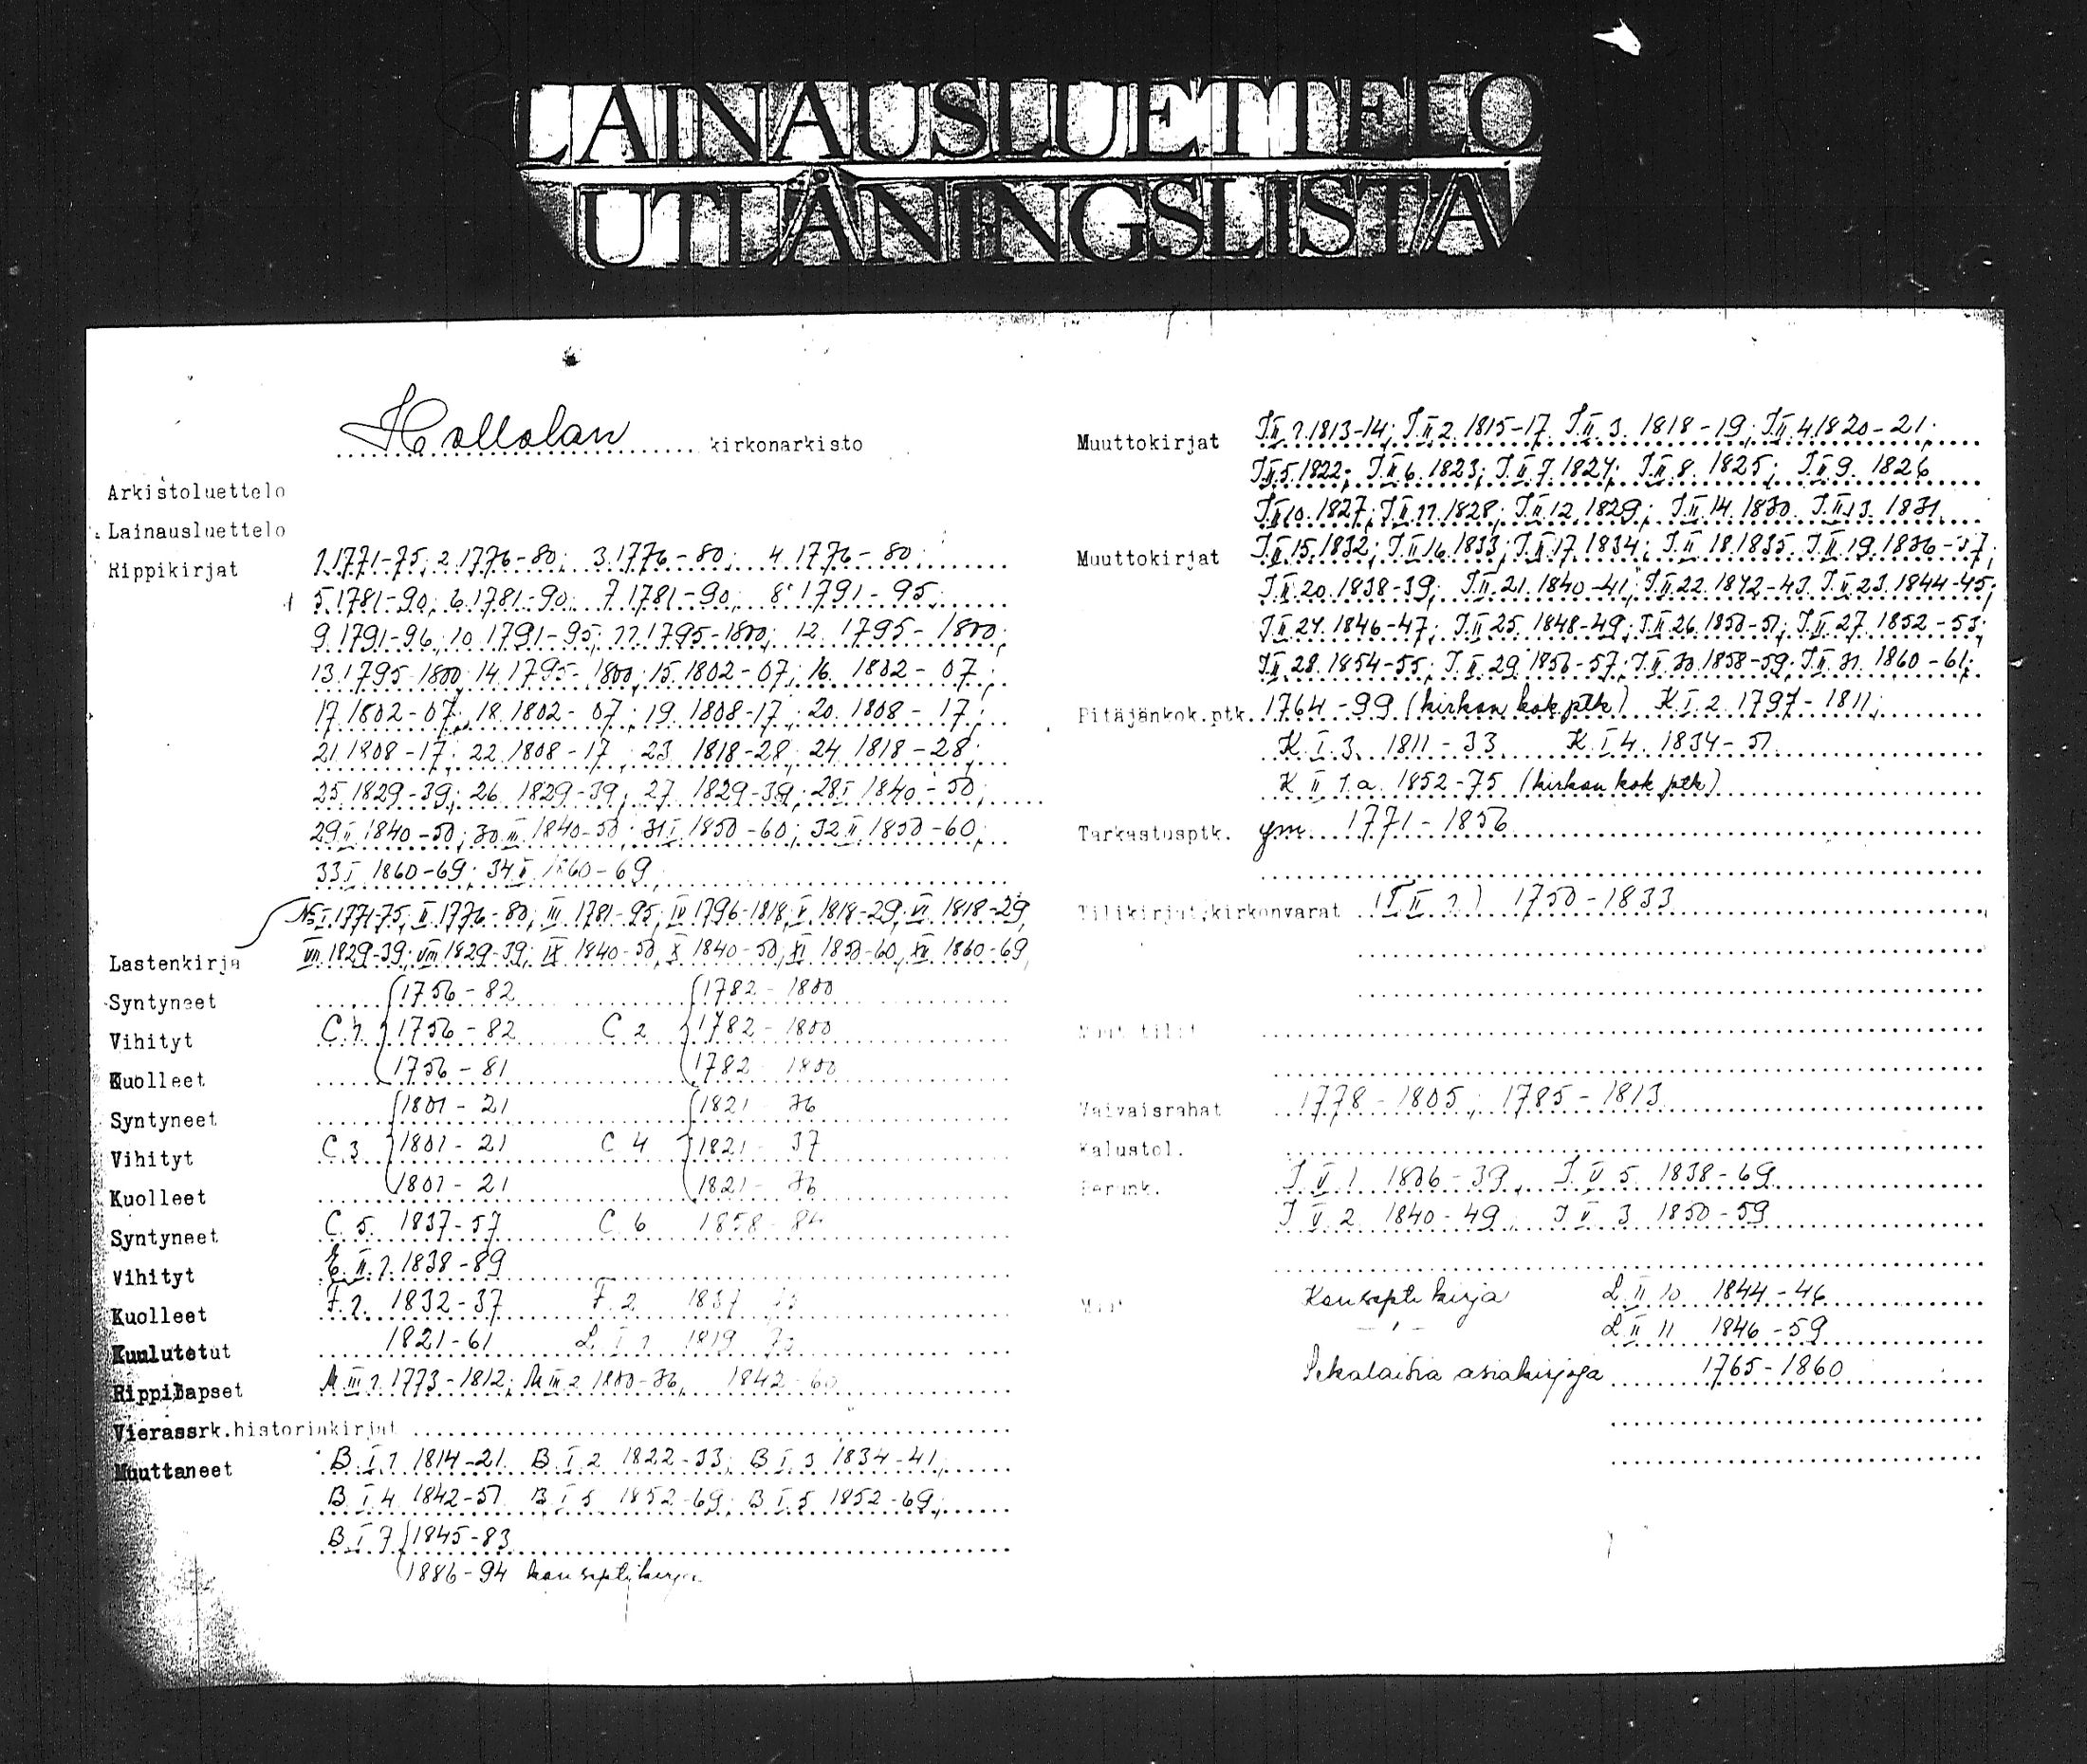 LAINAUSLUETTELO
UTLÅNINGSLISTA
Hollolan kirkonarkisto
Arkistoluettelo
Lainausluettelo
Rippikirjat 1.1771-75; 2.1776-80; 3.1776-80; 4.1776-80;
5.1781-90; 6.1781-90; 7.1781-90; 8.1791-95;
9.1791-96; 10.1791-95; 11.1795-1800; 12.1795-1800;
13.1795-1800; 14.1795-1800; 15.1802-07; 16.1802-07;
17.1802-07; 18.1802-07; 19.1808-17; 20.1808-17;
21.1808-17; 22.1808-17; 23.1818-28; 24.1818-28;
25.1829-39; 26.1829-39; 27.1829-39; 28 I 1840-50;
29 II 1840-50; 30 III 1840-50; 31 I 1850-60; 32 II 1850-60;
33 I 1860-69; 34 II 1860-69;
No I.1771-75; II.1776-80; III.1781-95; IV 1796-1818; V 1818-29; VI.1818-29;
Lastenkirja VII.1829-39; VIII 1829-39; IX 1840-50; X 1840-50; XI 1850-60; XII.1860-69;
Syntyneet 1756-82 1782-1800
Vihityt C.1 1756-82 C 2 1782-1800
Kuolleet 1756-81 1782 1800
Syntyneet 1801-21 1821 36
Vihityt C.3 1801-21 C 4 1821-37
Kuolleet 1801-21 1821-36
Syntyneet C.5. 1837-57 C 6 1858-84
Vihityt E.II.1.1838-89
Kuolleet F.1. 1832-37 F.2 1837
Kuulutetut 1821-61 L.I.1 1819
Rippilapset M.III.1.1773-1812; M.III.2 1800-36, 1842-60
Vierassrk.historiakirjat
Muuttaneet B.I.1 1814-21. B.I.2 1822-33; B I.3 1834-41;
B I.4 1842-51 B I 5 1852-69; B I.5 1852-69;
B.I 7 1845-83
1886-94 konseptikirja
Muuttokirjat I.II.1.1813-14; I.II.2.1815-17. I.II.3.1818-19; I.II.4.1820-21;
I.II.5.1822; I.II.6.1823; I.II.7.1824; I.II.8.1825; I.II.9.1826
I.II.10.1827; I.II.11.1828; I.II.12.1829; I.II.14.1830. I.II.13.1831
Muuttokirjat I.II.15.1832; I.II.16.1833; I.II.17.1834; I.II.18.1835. I.II.19.1836-37;
I.II.20.1838-39; I.II.21.1840-41; I.II.22.1842-43. I.II.23.1844-45;
I.II.24.1846-47; I.II.25.1848-49; I.II.26.1850-51; I.II.27.1852-53;
I.II.28.1854-55; I.II.29 1856-57; I.II.30.1858-59; I.II.31.1860-61;
Pitäjänkok.ptk. 1764-99 (kirkon kok.ptk) K.I.2.1797-1811;
K.I.3. 1811-33 K.I 4. 1834-51
K II 1.a. 1852-75 (kirkon kok ptk)
Tarkastusptk. ym. 1771-1856
Tilikirjat,kirkonvarat (T.II.1) 1750-1833
Muut tilit
Vaivaisrahat 1778-1805; 1785-1813
Kalustol.
Perunk. I V 1 1836-39, I.V 5. 1838-69
I V 2 1840-49; I V 3 1850-59
Muut Konseptikirja L II 10 1844-46
L II 11 1846-59
Sekalaisia asiakirjoja 1765-1860